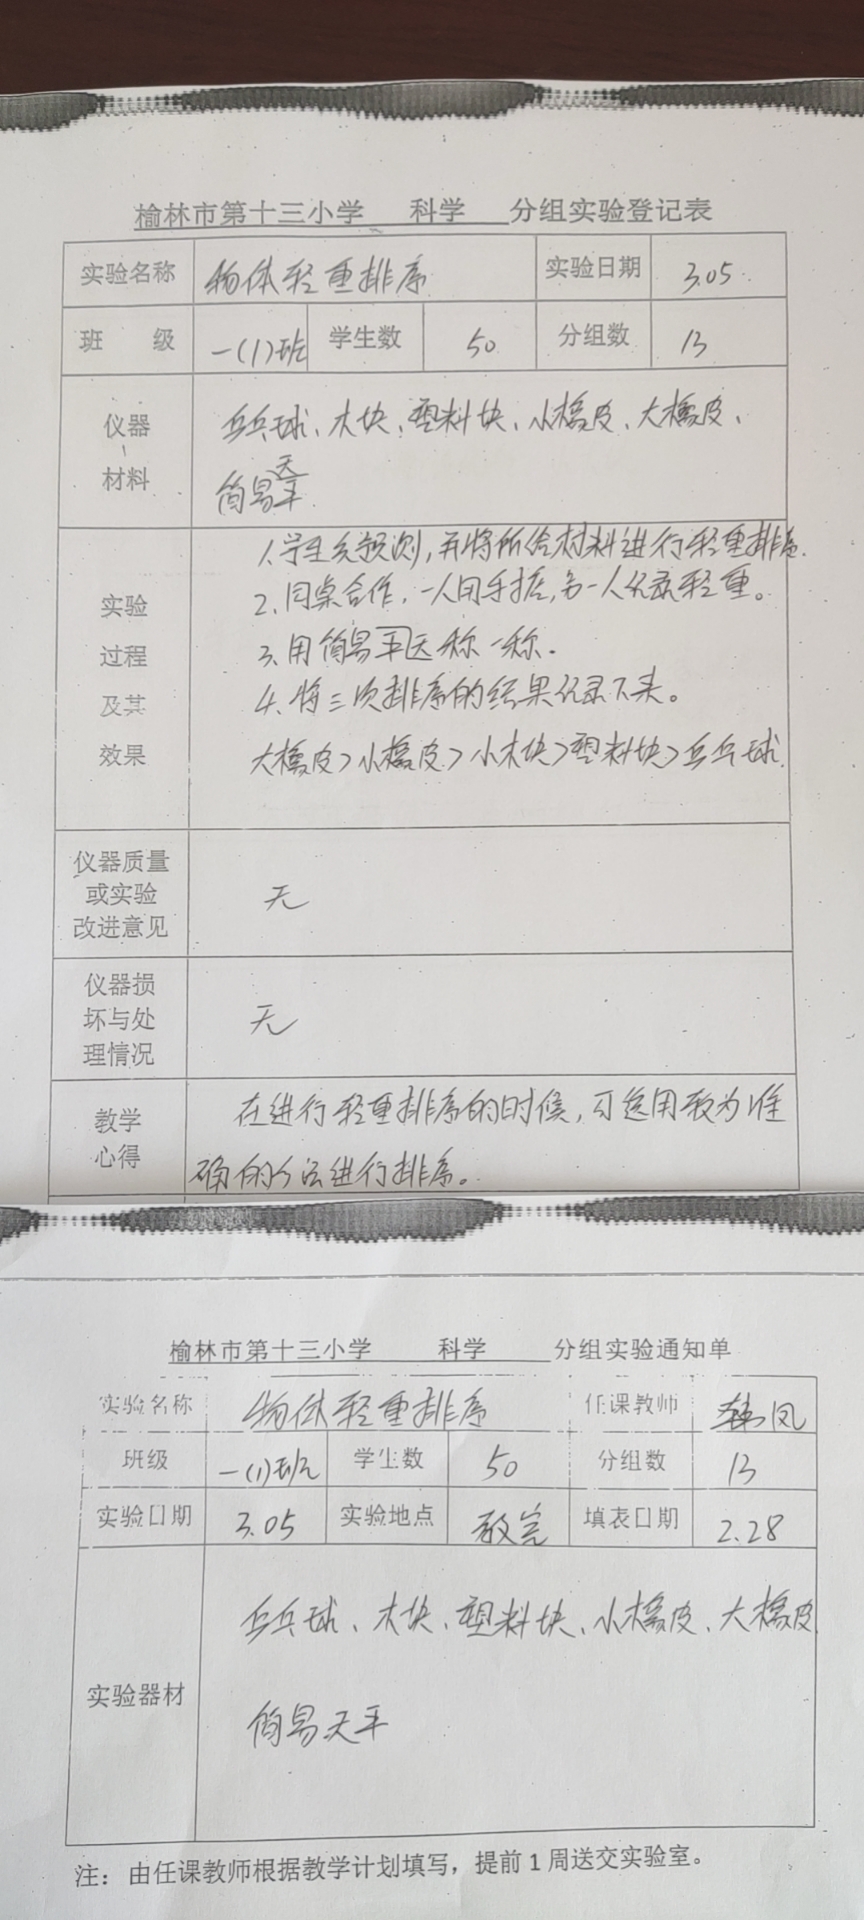 榆林市第十三小学 科学 分组实验登记表
实验名称 物体轻重排序 实验日期 3.05
班 级 一(1)班 学生数 50 分组数 13
仪器
材料
乒乓球、木块、塑料块、小橡皮、大橡皮、
简易天平
实验
过程
及其
效果
1.学生先预测,并将所给材料进行轻重排序.
2.同桌合作,一人用手掂,另一人记录轻重。
3.用简易平天称一称.
4.将三次排序的结果记录下来。
大橡皮>小橡皮>小木块>塑料块>乒乓球.
仪器质量
或实验
改进意见
无
仪器损
坏与处
理情况
无
教学
心得
在进行轻重排序的时候,可选用较为准
确的方法进行排序。
榆林市第十三小学 科学 分组实验通知单
实验名称 物体轻重排序 任课教师 韩凤
班级 一(1)班 学生数 50 分组数 13
实验日期 3.05 实验地点 教室 填表日期 2.28
实验器材
乒乓球、木块、塑料块、小橡皮、大橡皮
简易天平
注：由任课教师根据教学计划填写，提前1周送交实验室。